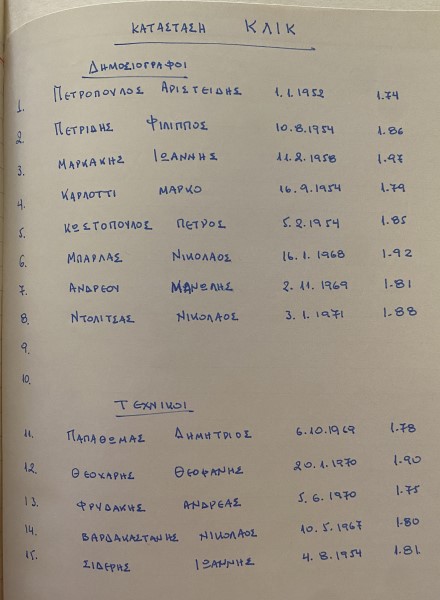 ΚΑΤΑΣΤΑΣΗ ΚΛΙΚ
ΔΗΜΟΣΙΟΓΡΑΦΟΙ
1. ΠΕΤΡΟΠΟΥΛΟΣ ΑΡΙΣΤΕΙΔΗΣ 1.1.1952 1.74
2. ΠΕΤΡΙΔΗΣ ΦΙΛΙΠΠΟΣ 10.8.1954 1.86
3. ΜΑΡΚΑΚΗΣ ΙΩΑΝΝΗΣ 11.2.1958 1.97
4. ΚΑΡΛΟΤΤΙ ΜΑΡΚΟ 16.9.1954 1.79
5. ΚΩΣΤΟΠΟΥΛΟΣ ΠΕΤΡΟΣ 5.2.1954 1.85
6. ΜΠΑΡΛΑΣ ΝΙΚΟΛΑΟΣ 16.1.1968 1.92
7. ΑΝΔΡΕΟΥ ΜΑΝΩΛΗΣ 2.11.1969 1.81
8. ΝΤΟΛΙΤΣΑΣ ΝΙΚΟΛΑΟΣ 3.1.1971 1.88
9.
10.
ΤΕΧΝΙΚΟΙ
11. ΠΑΠΑΘΩΜΑΣ ΔΗΜΗΤΡΙΟΣ 6.10.1969 1.78
12. ΘΕΟΧΑΡΗΣ ΘΕΟΦΑΝΗΣ 20.1.1970 1.90
13. ΦΡΥΔΑΚΗΣ ΑΝΔΡΕΑΣ 5.6.1970 1.75
14. ΒΑΡΔΑΚΑΣΤΑΝΗΣ ΝΙΚΟΛΑΟΣ 10.5.1967 1.80
15. ΣΙΔΕΡΗΣ ΙΩΑΝΝΗΣ 4.8.1954 1.81